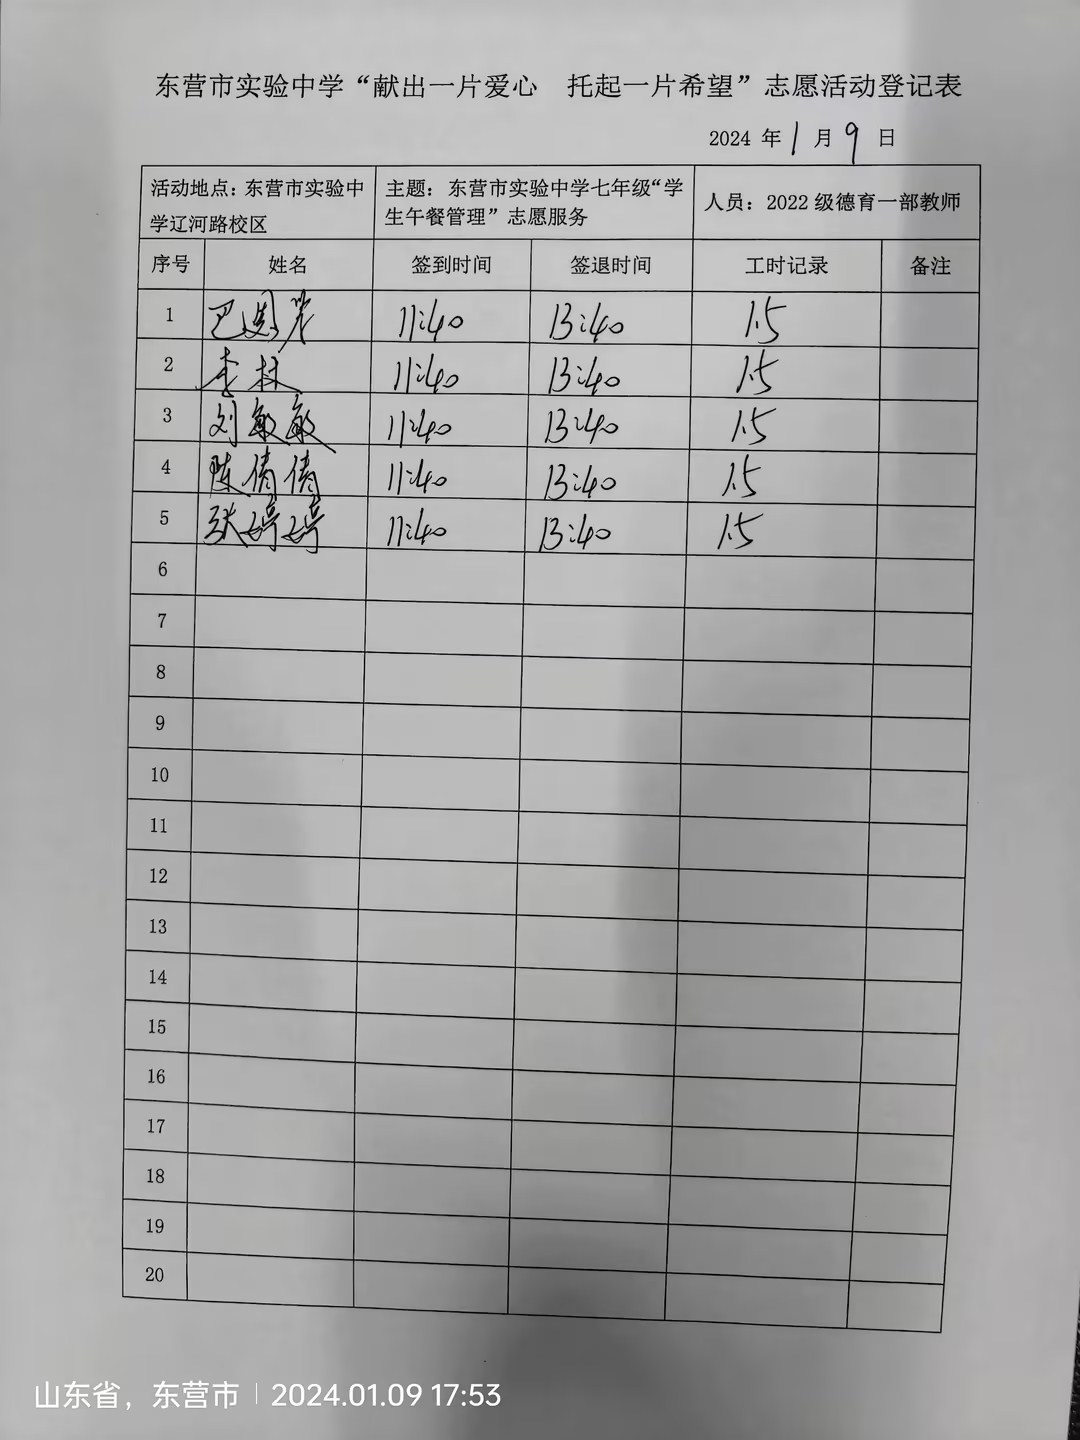 东营市实验中学“献出一片爱心　托起一片希望”志愿活动登记表
2024 年 1 月 9 日
活动地点：东营市实验中
学辽河路校区
主题：东营市实验中学七年级“学
生午餐管理”志愿服务
人员：2022 级德育一部教师
序号 姓名 签到时间 签退时间 工时记录 备注
1 巴 11:40 13:40 1.5
2 李林 11:40 13:40 1.5
3 刘敏敏 11:40 13:40 1.5
4 陈倩倩 11:40 13:40 1.5
5 张婷婷 11:40 13:40 1.5
6
7
8
9
10
11
12
13
14
15
16
17
18
19
20
山东省，东营市 | 2024.01.09 17:53